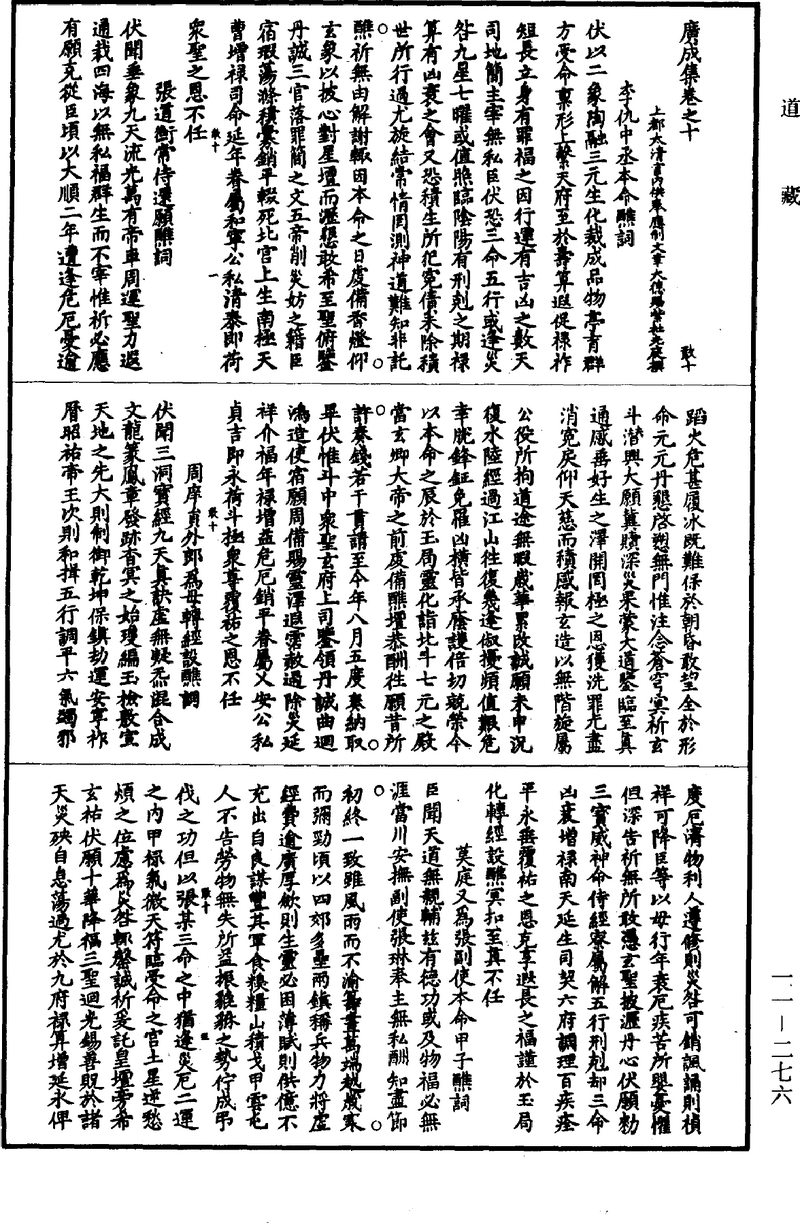 道藏
廣成集卷之十
敢十
上都太清宮內供奉應制文章大德賜紫杜光庭撰
李仇中丞本命醮詞
伏以二象陶融三元生化裁成品物亭育群
方受命稟形上繫天府至於壽算遐促祿祚
短長立身有罪福之因行運有吉凶之數天
司地簡主宰無私臣伏恐三命五行或逢災
咎九星七曜或值照臨陰陽有刑剋之期祿
算有凶衰之會又恐積生所犯冤債未除積
世所行過尤旋結常情罔測神道難知非託
醮祈無由解謝輒因本命之日虔備香燈仰
玄象以披心對星壇而瀝懇敢希至聖俯鑒
丹誠三官落罪簡之文五帝削災妨之籍臣
宿瑕蕩滌積釁銷平輟死北宮上生南極天
曹增祿司命延年眷屬和寧公私清泰即荷
衆聖之恩不任
張道衡常侍還願醮詞
伏聞垂象九天流光萬有帝車周運聖力遐
通裁四海以無私福群生而不宰惟祈必應
有願克從臣頃以大順二年遭逢危厄憂逾
蹈火危甚履冰既難保於朝昏敢望全於形
命元元丹懇啓愬無門惟注念蒼穹冥祈玄
斗潛興大願冀贖深災果蒙大道鑒臨至真
通感垂好生之澤開罔極之恩獲洗罪尤盡
消冤戾仰天慈而積感報玄造以無階旋屬
公役所拘道途無暇歲華累改誠願未申況
復水陸經過江山往復幾逢俶擾頻值艱危
幸脫鋒鋩免罹凶橫皆承廕護倍切兢榮今
以本命之辰於玉局靈化詣北斗七元之殿
當玄卿大帝之前虔備醮壇恭酬往願昔所
許奏錢若干貫請至今年八月五度奏納取
畢伏惟斗中衆聖玄府上司鑒領丹誠曲迴
鴻造使宿願周備賜靈澤遐霑赦過除災延
祥介福年祿增益危厄銷平眷屬乂安公私
貞吉即永荷斗極衆尊覆祐之恩不任
周庠員外郎為母轉經設醮詞
伏聞三洞寶經九天真訣虛無凝炁混合成
文龍篆鳳章發跡杳冥之始瓊編玉檢敷宣
天地之先大則制御乾坤保鎮劫運安寧祚
曆昭祐帝王次則和揖五行調平六氣蠲邪
度厄濟物利人遵修則災咎可銷諷誦則禎
祥可降臣等以母行年衰厄疾苦所興憂懼
但深告祈無所敢憑玄聖披瀝丹心伏願勑
三寶威神命侍經寮屬解五行刑剋却三命
凶衰增祿南天延生司契六府調理百疾痊
平永垂覆祐之恩克享遐長之福謹於玉局
化轉經設醮冥扣至真不任
莫庭乂為張副使本命甲子醮詞
臣聞天道無親輔茲有德功或及物福必無
涯當川安撫副使張琳奉主無私酬知盡節
初終一致雖風雨而不渝籌畫萬端越歲寒
而彌勁頃以四郊多壘兩鎮稱兵物力將虛
經費逾廣厚斂則生靈必困薄賦則供億不
充出自良謀豐其軍食糗糧山積戈甲雲屯
人不告勞物無失所益振貔貅之勢佇成弔
伐之功但以張某三命之中猶逢災厄二運
之內甲祿氣微天符臨受命之宮土星逆愁
煩之位慮為災咎輒罄誠祈爰託皇壇旁希
玄祐伏願十華降福三聖迴光錫善貺於諸
天災殃自息蕩過尤於九府祿算增延永俾
一一－二七六